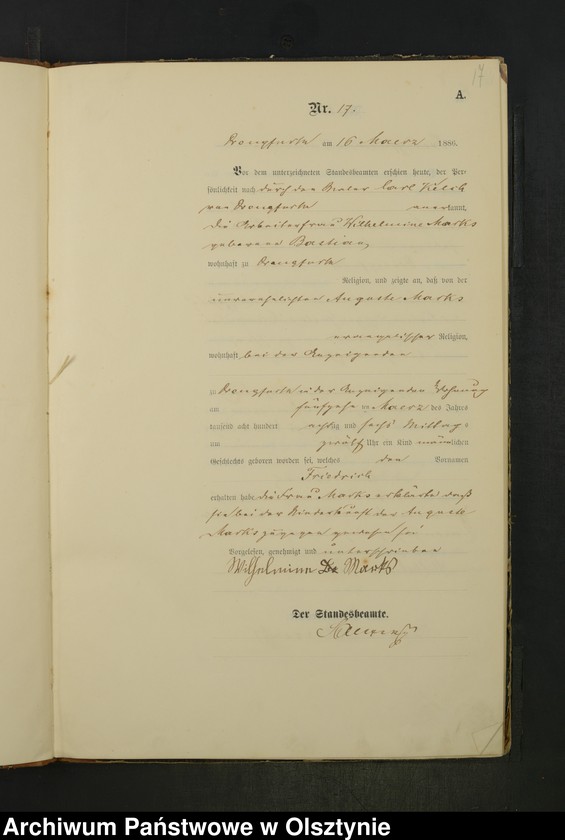 17
A.
Nr. 17.
Drengfurth am 16 Maerz 1886.
Vor dem unterzeichneten Standesbeamten erschien heute, der Per-
sönlichkeit nach durch den Carl
von Drengfurth anerkannt,
die Arbeiterfrau Wilhelmine Marks
geborene Bastian,
wohnhaft zu Drengfurth
Religion, und zeigte an, daß von der
unverehelichten Auguste Marks
evangelischer Religion,
wohnhaft bei der Anzeigenden
zu Drengfurth in der Anzeigenden Wohnung
am fünfzehn ten Maerz des Jahres
tausend acht hundert achtzig und sechs Mittags
um zwölf Uhr ein Kind männlichen
Geschlechts geboren worden sei, welches den Vornamen
Friedrich
erhalten habe. Die Frau Marks erklärte daß
sie bei der Niederkunft der Auguste
Marks zugegen gewesen sei
Vorgelesen, genehmigt und unterschrieben
Wilhelmine Marks
Der Standesbeamte.
Archiwum Państwowe w Olsztynie